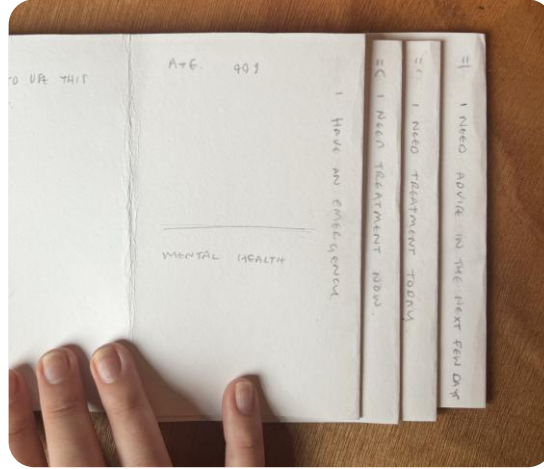 TO USE THIS
A+E. 999
MENTAL HEALTH
I HAVE AN EMERGENCY
I NEED TREATMENT NOW.
I NEED TREATMENT TODAY
I NEED ADVICE IN THE NEXT FEW DAYS